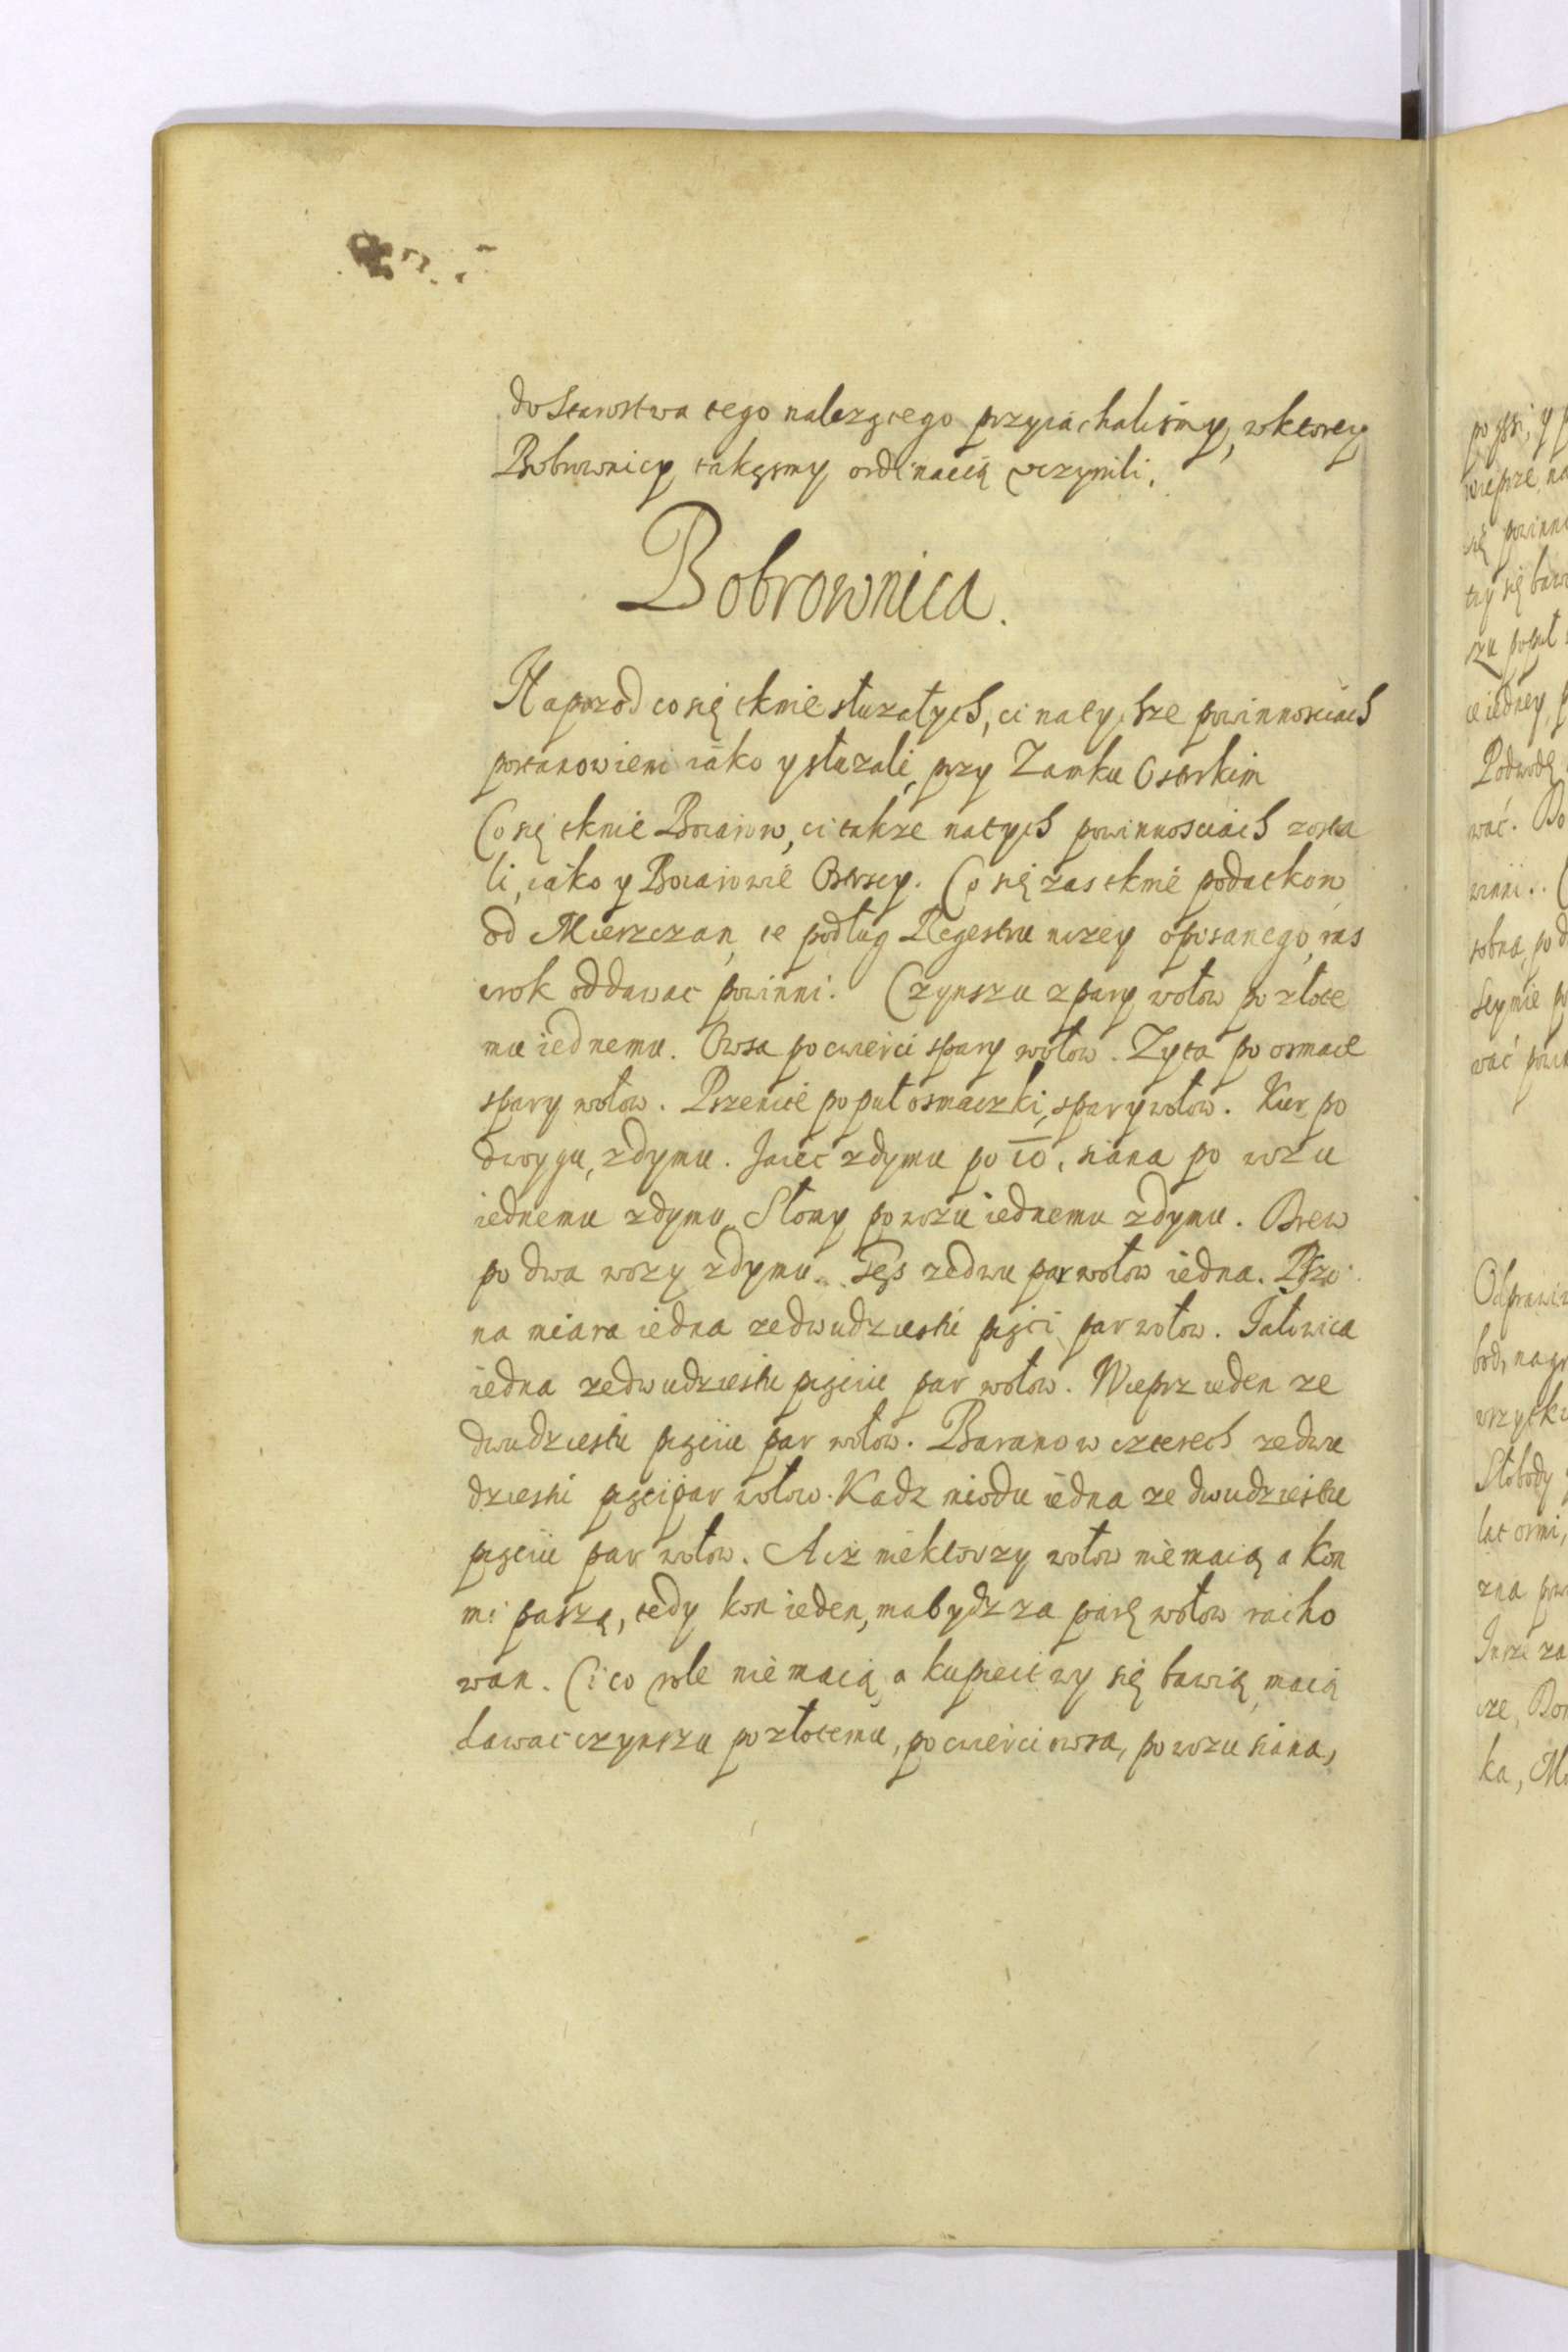 do Starostwa tego nalezącego przyiachalismy, wktorey
Bobrownicy takąsmy ordinacią vczynili.
Bobrownica.
Naprzod co się tknie słuzałych, ci na tychze powinnosciach
postanowieni iako y słuzali, przy Zamku Osterkim
Co się tknie Boiarow, ci takze natych powinnosciach zosta
li, iako y Boiarowie Osterscy. Co się zas tknie podatkow
od Mieszczan, te podług Regestru nizey opisanego, ras
wrok oddawac powinni. Czynszu z pary wołow po złote
mu iednemu. Owsa po cwierci spary wołow. Zyta po osmace
spary wołow. Pszenice po puł osmaczki, spary wołow. Kur po
dwoygu, zdymu. Jaiec zdymu po 10, siana po wozu
iednemu zdymu, Słomy po wozu iednemu zdymu. Drew
po dwa wozy zdymu. Gęs ze dwu par wołow iedna. Psze
na miara iedna ze dwudziestu pięci par wołow. Jałowica
iedna zedwudziestu pięciu par wołow. Wieprz ieden ze
dwudziestu pięciu par wołow. Baranow czterech ze dwu
dziestu pięci par wołow. Kadz miodu iedna ze dwudziestu
pięciu par wołow. Aiz niektorzy wołow niemaią a kon
mi paszą, tedy kon ieden, mabydz za parę wołow racho
wan. Ci co role niemaią, a kupiectwy się bawią, maią
dawac czynszu po złotemu, po cwierci owsa, po wozu siana,
po
y p
wieprze, na
się powinn
się
szu poputł
iedney, p
Podwodę
wać. Do
winni.
sobna, pod
Seymie po
wać powi
Odprawi
bod, nagr
wszytki
Słobody
lat osmi,
zna pow
Insze za
cze,
ka, Mo